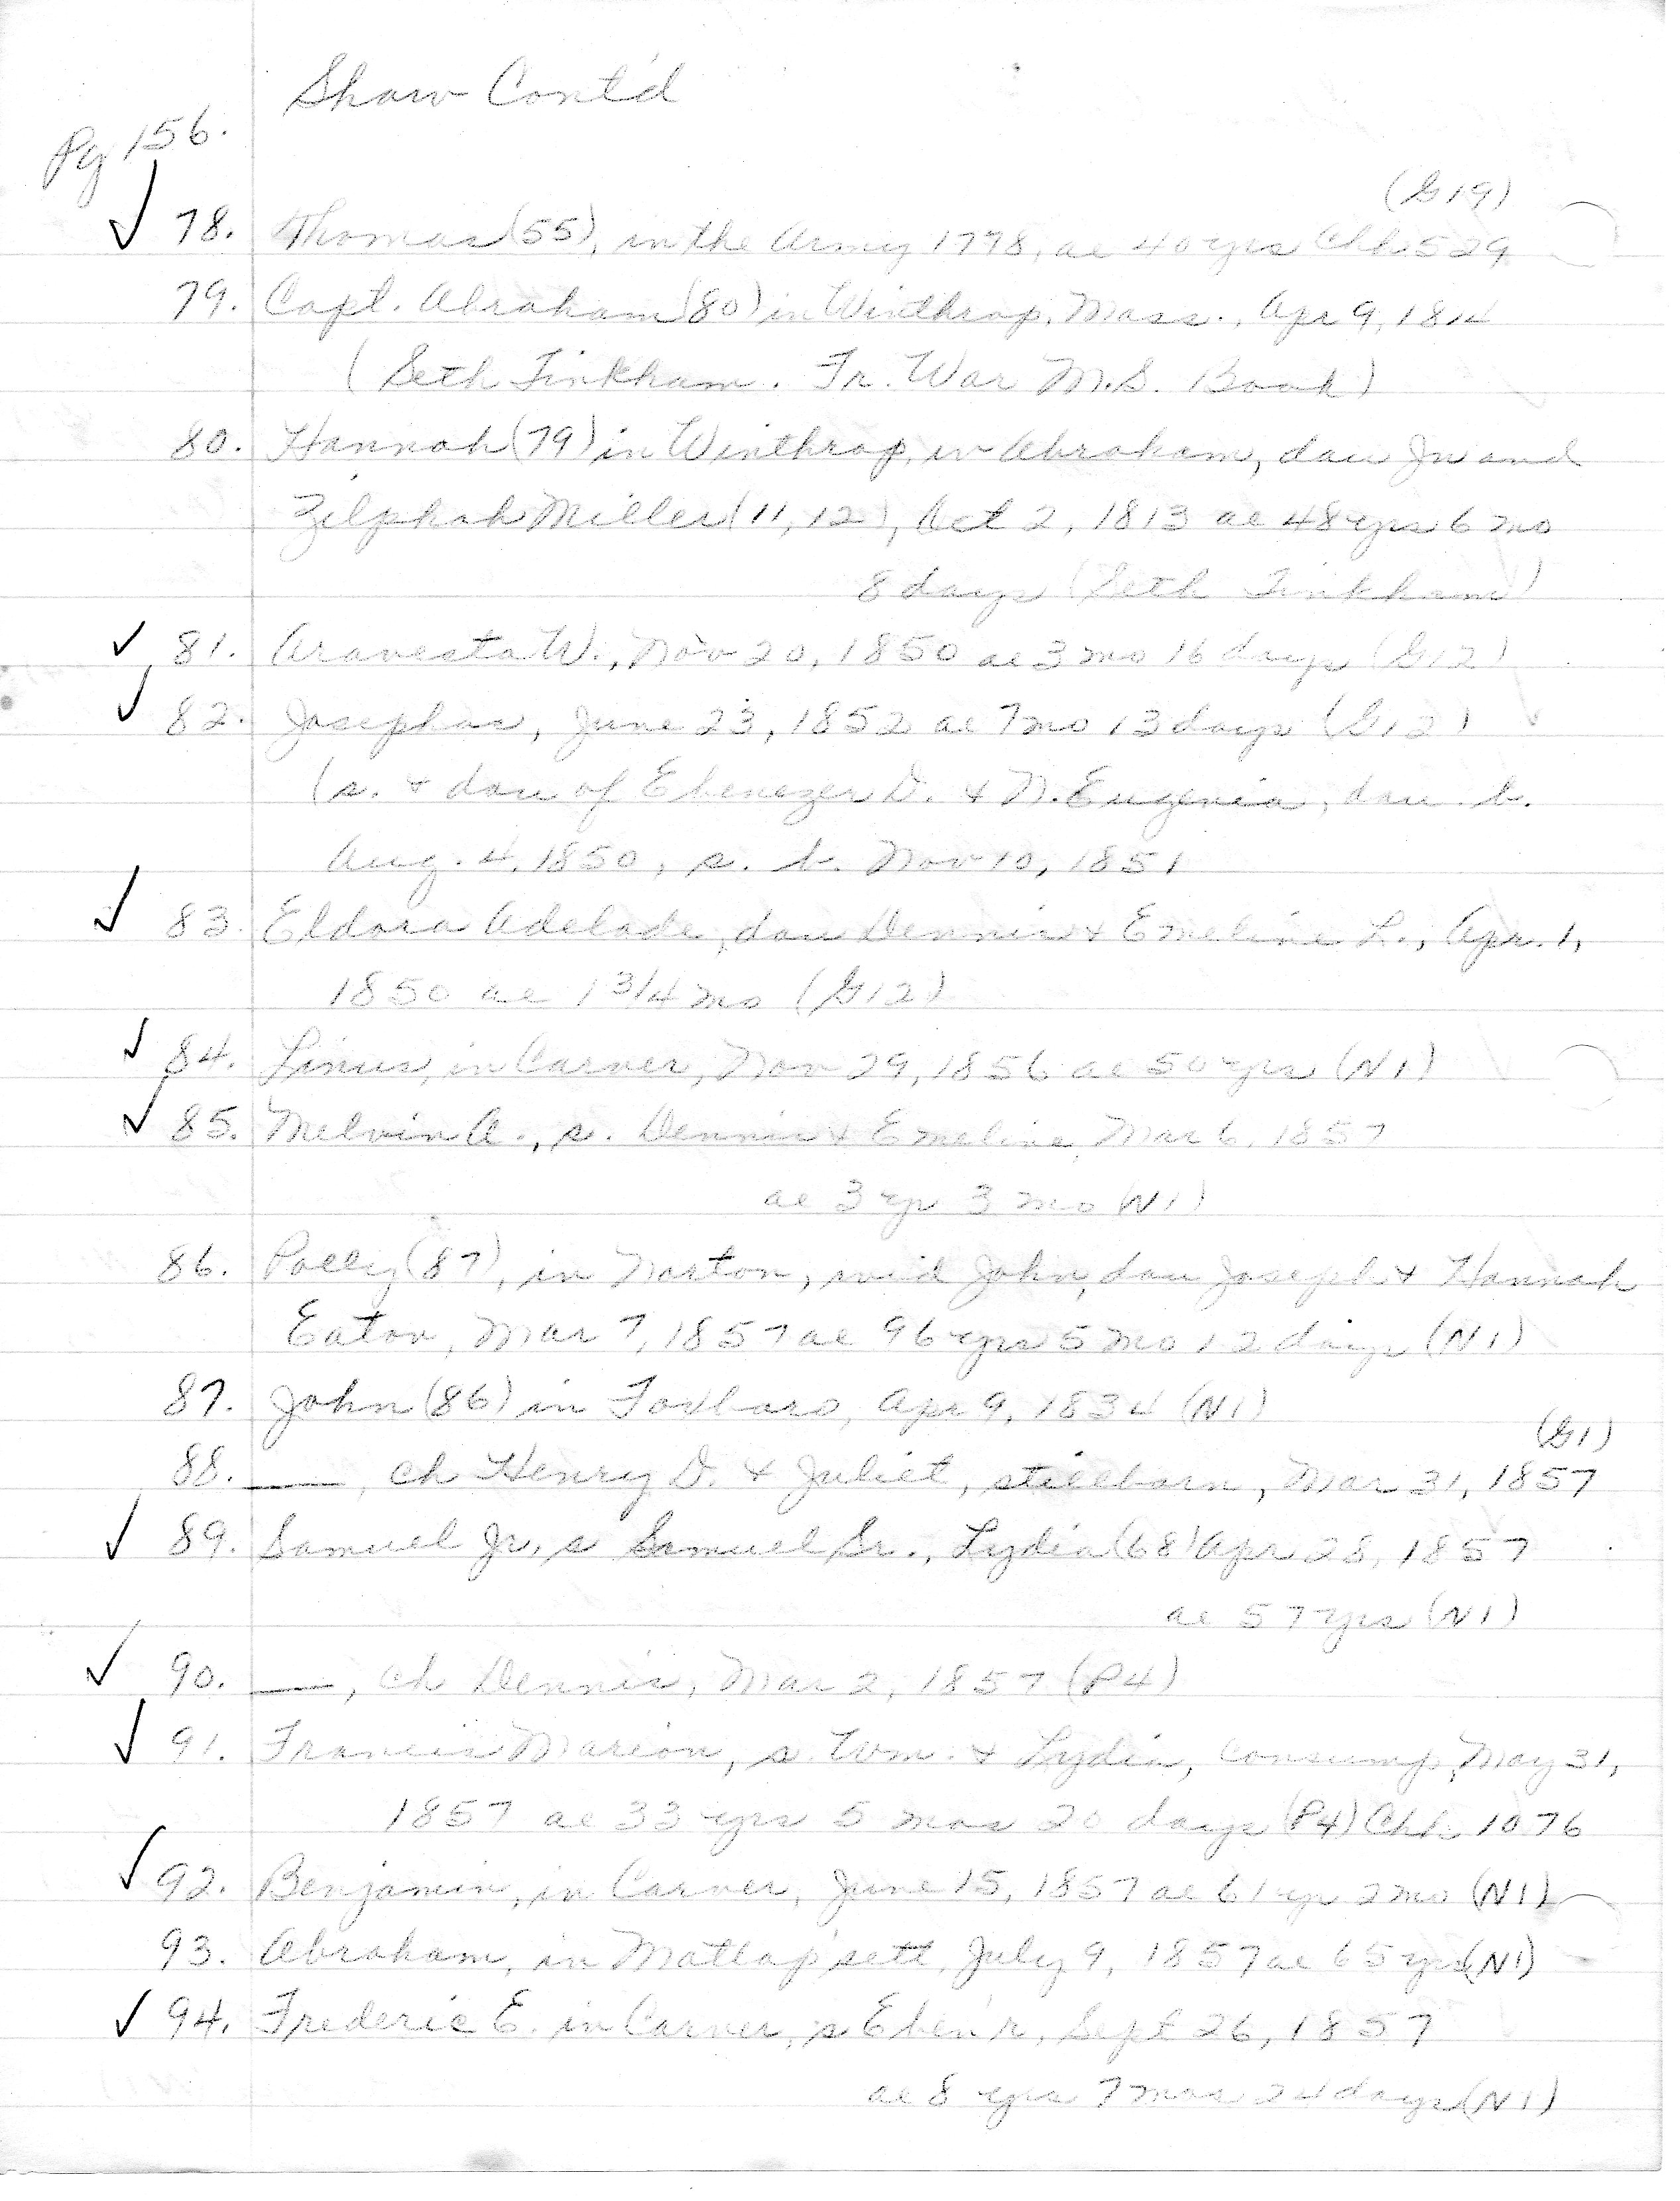 Shaw Cont'd
Pg 156.
(G19)
✓ 78. Thomas (55), in the Army 1778, ae 40 yrs Chh 529
79. Capt. Abraham (80) in Winthrop, Mass., Apr 9, 1814
(Seth Tinkham. Fr. War M.S. Book)
80. Hannah (79) in Winthrop, w Abraham, dau Jn and
Zilphah Miller (11, 12), Oct 2, 1813 ae 48 yrs 6 mo
8 days (Seth Tinkham)
✓ 81. Aravesta W., Nov 20, 1850 ae 3 mo 16 days (G12)
✓ 82. Josephas, June 23, 1852 ae 7 mo 13 days (G12)
(s. + dau of Ebenezer D. + N. Eugenia, dau. b.
Aug. 4, 1850, s. b. Nov 10, 1851
✓ 83. Eldora Adelade, dau Dennis + Emeline L., Apr. 1,
1850 ae 1 3/4 mo (G12)
✓ 84. Linus, in Carver, Nov 29, 1856 ae 50 yrs (N1)
✓ 85. Melvin A., s. Dennis + Emeline, Mar 6, 1857
ae 3 yr 3 mo (N1)
86. Polly (87), in Norton, wid John, dau Joseph + Hannah
Eaton, Mar 7, 1857 ae 96 yrs 5 mo 12 days (N1)
87. John (86) in Foxboro, Apr 9, 1834 (N1)
(G1)
88. —, ch Henry D. + Juliet, stillborn, Mar 31, 1857
✓ 89. Samuel Jr, s Samuel Sr., Lydia (68) Apr 28, 1857
ae 57 yrs (N1)
✓ 90. —, ch Dennis, Mar 2, 1857 (P4)
✓ 91. Francis Marion, s Wm. + Lydia, consump, May 31,
1857 ae 33 yrs 5 mos 20 days (P4) Chh 1076
✓ 92. Benjamin, in Carver, June 15, 1857 ae 61 yr 2 mo (N1)
93. Abraham, in Mattap'sett, July 9, 1857 ae 65 yrs (N1)
✓ 94. Frederic E. in Carver, s Eben'r, Sept 26, 1857
ae 8 yrs 7 mos 24 days (N1)